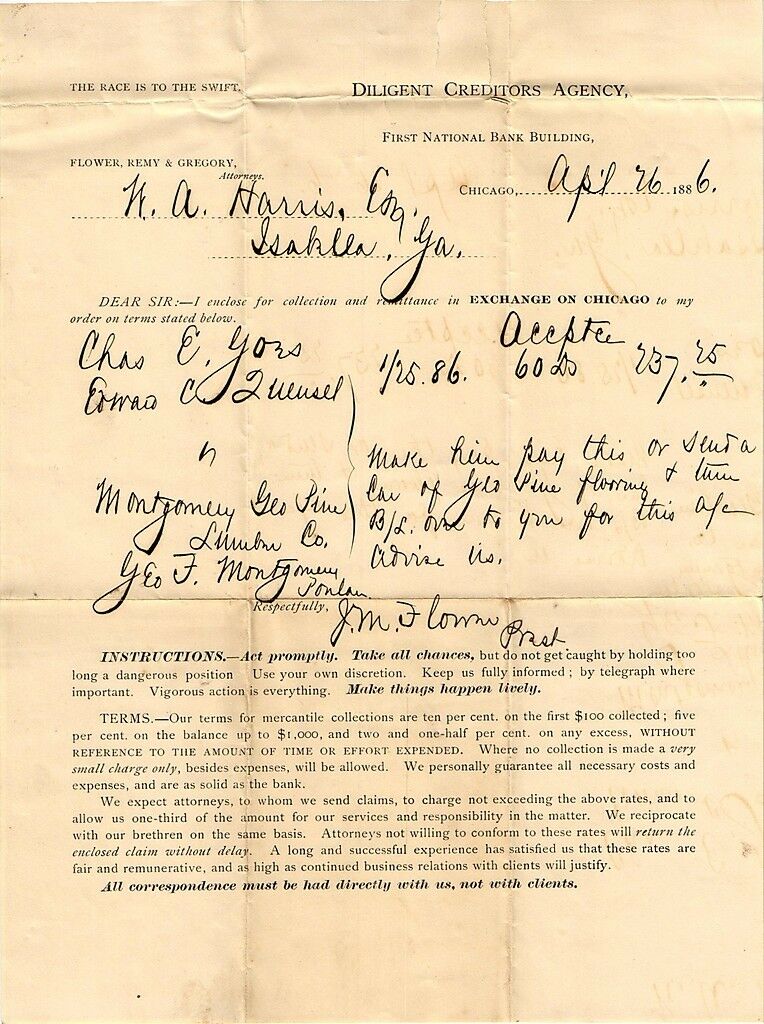 THE RACE IS TO THE SWIFT.
DILIGENT CREDITORS AGENCY,
FIRST NATIONAL BANK BUILDING,
FLOWER, REMY & GREGORY,
Attorneys.
CHICAGO, Apl 26 1886.
W. A. Harris, Esq.
Isabella, Ga.
DEAR SIR:—I enclose for collection and remittance in EXCHANGE ON CHICAGO to my
order on terms stated below.
Chas E. Accptce
1/25.86. 60 Ds 237.25
Edward C.
Montgomery Geo Pine
Lumber Co.
Geo F. Montgomery
Make him pay this or send a
Car of Geo Pine flooring & turn
B/L. over to you for this a/c
Advise us.
Respectfully, J.M. Flower
Prest
INSTRUCTIONS.—Act promptly. Take all chances, but do not get caught by holding too
long a dangerous position Use your own discretion. Keep us fully informed; by telegraph where
important. Vigorous action is everything. Make things happen lively.
TERMS.—Our terms for mercantile collections are ten per cent. on the first $100 collected; five
per cent. on the balance up to $1,000, and two and one-half per cent. on any excess, WITHOUT
REFERENCE TO THE AMOUNT OF TIME OR EFFORT EXPENDED. Where no collection is made a very
small charge only, besides expenses, will be allowed. We personally guarantee all necessary costs and
expenses, and are as solid as the bank.
We expect attorneys, to whom we send claims, to charge not exceeding the above rates, and to
allow us one-third of the amount for our services and responsibility in the matter. We reciprocate
with our brethren on the same basis. Attorneys not willing to conform to these rates will return the
enclosed claim without delay. A long and successful experience has satisfied us that these rates are
fair and remunerative, and as high as continued business relations with clients will justify.
All correspondence must be had directly with us, not with clients.